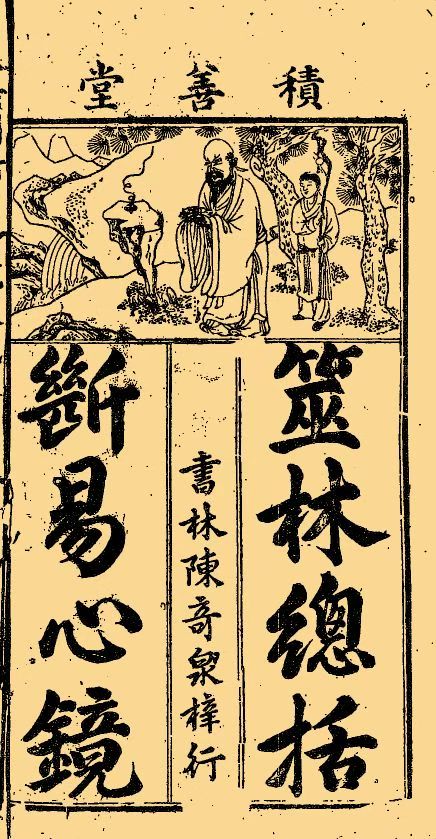 積善堂
筮林總括
書林陳奇泉梓行
斷易心鏡